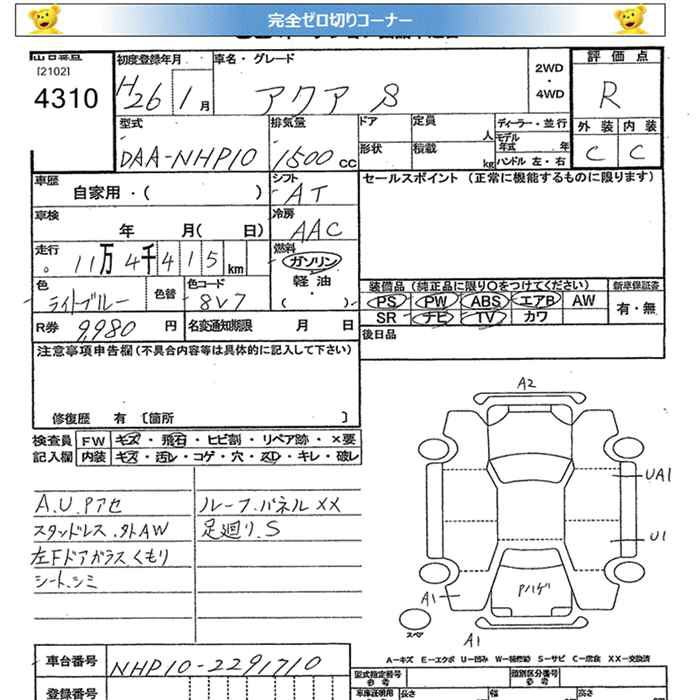 完全ゼロ切りコーナー
[2102]
4310
初度登録年月
H26 1月
車名・グレード
アクア S
2WD
・
4WD
評価点
R
外装 内装
C C
型式
DAA-NHP10
排気量
1500 cc
ドア 定員 人
形状 積載 kg
ディーラー・並行
モデル年式 年
ハンドル 左・右
車歴
自家用・( )
シフト
AT
セールスポイント (正常に機能するものに限ります)
車検
年 月( 日)
冷房
AAC
走行
11万4千415km
燃料
ガソリン
軽油
・
( )
色
ライトブルー
色替
色コード
8V7
装備品 (純正品に限り○をつけてください)
PS PW ABS エアB AW
SR ナビ TV カワ
新車保証書
有・無
R券 9,980 円
名変通知期限 月 日
後日品
注意事項申告欄 (不具合内容等は具体的に記入して下さい)
修復歴 有 〔箇所 〕
検査員記入欄
FW キズ・飛石・ヒビ割・リペア跡・×要
内装 キズ・汚レ・コゲ・穴・スレ・キレ・破レ
A.U.Pアセ
スタッドレス.外AW
左Fドアガラスくもり
シート.シミ
ルーフ.パネル××
足廻り.S
A2
UA1
U1
Pハゲ
A1
スペア
A1
A-キズ E-エクボ U-凹み W-補修跡 S-サビ C-腐食 XX-交換済
車台番号
NHP10-2291710
登録番号
型式指定番号
参考
類別区分番号
参考
車庫証明用
参考
長さ
幅
高さ